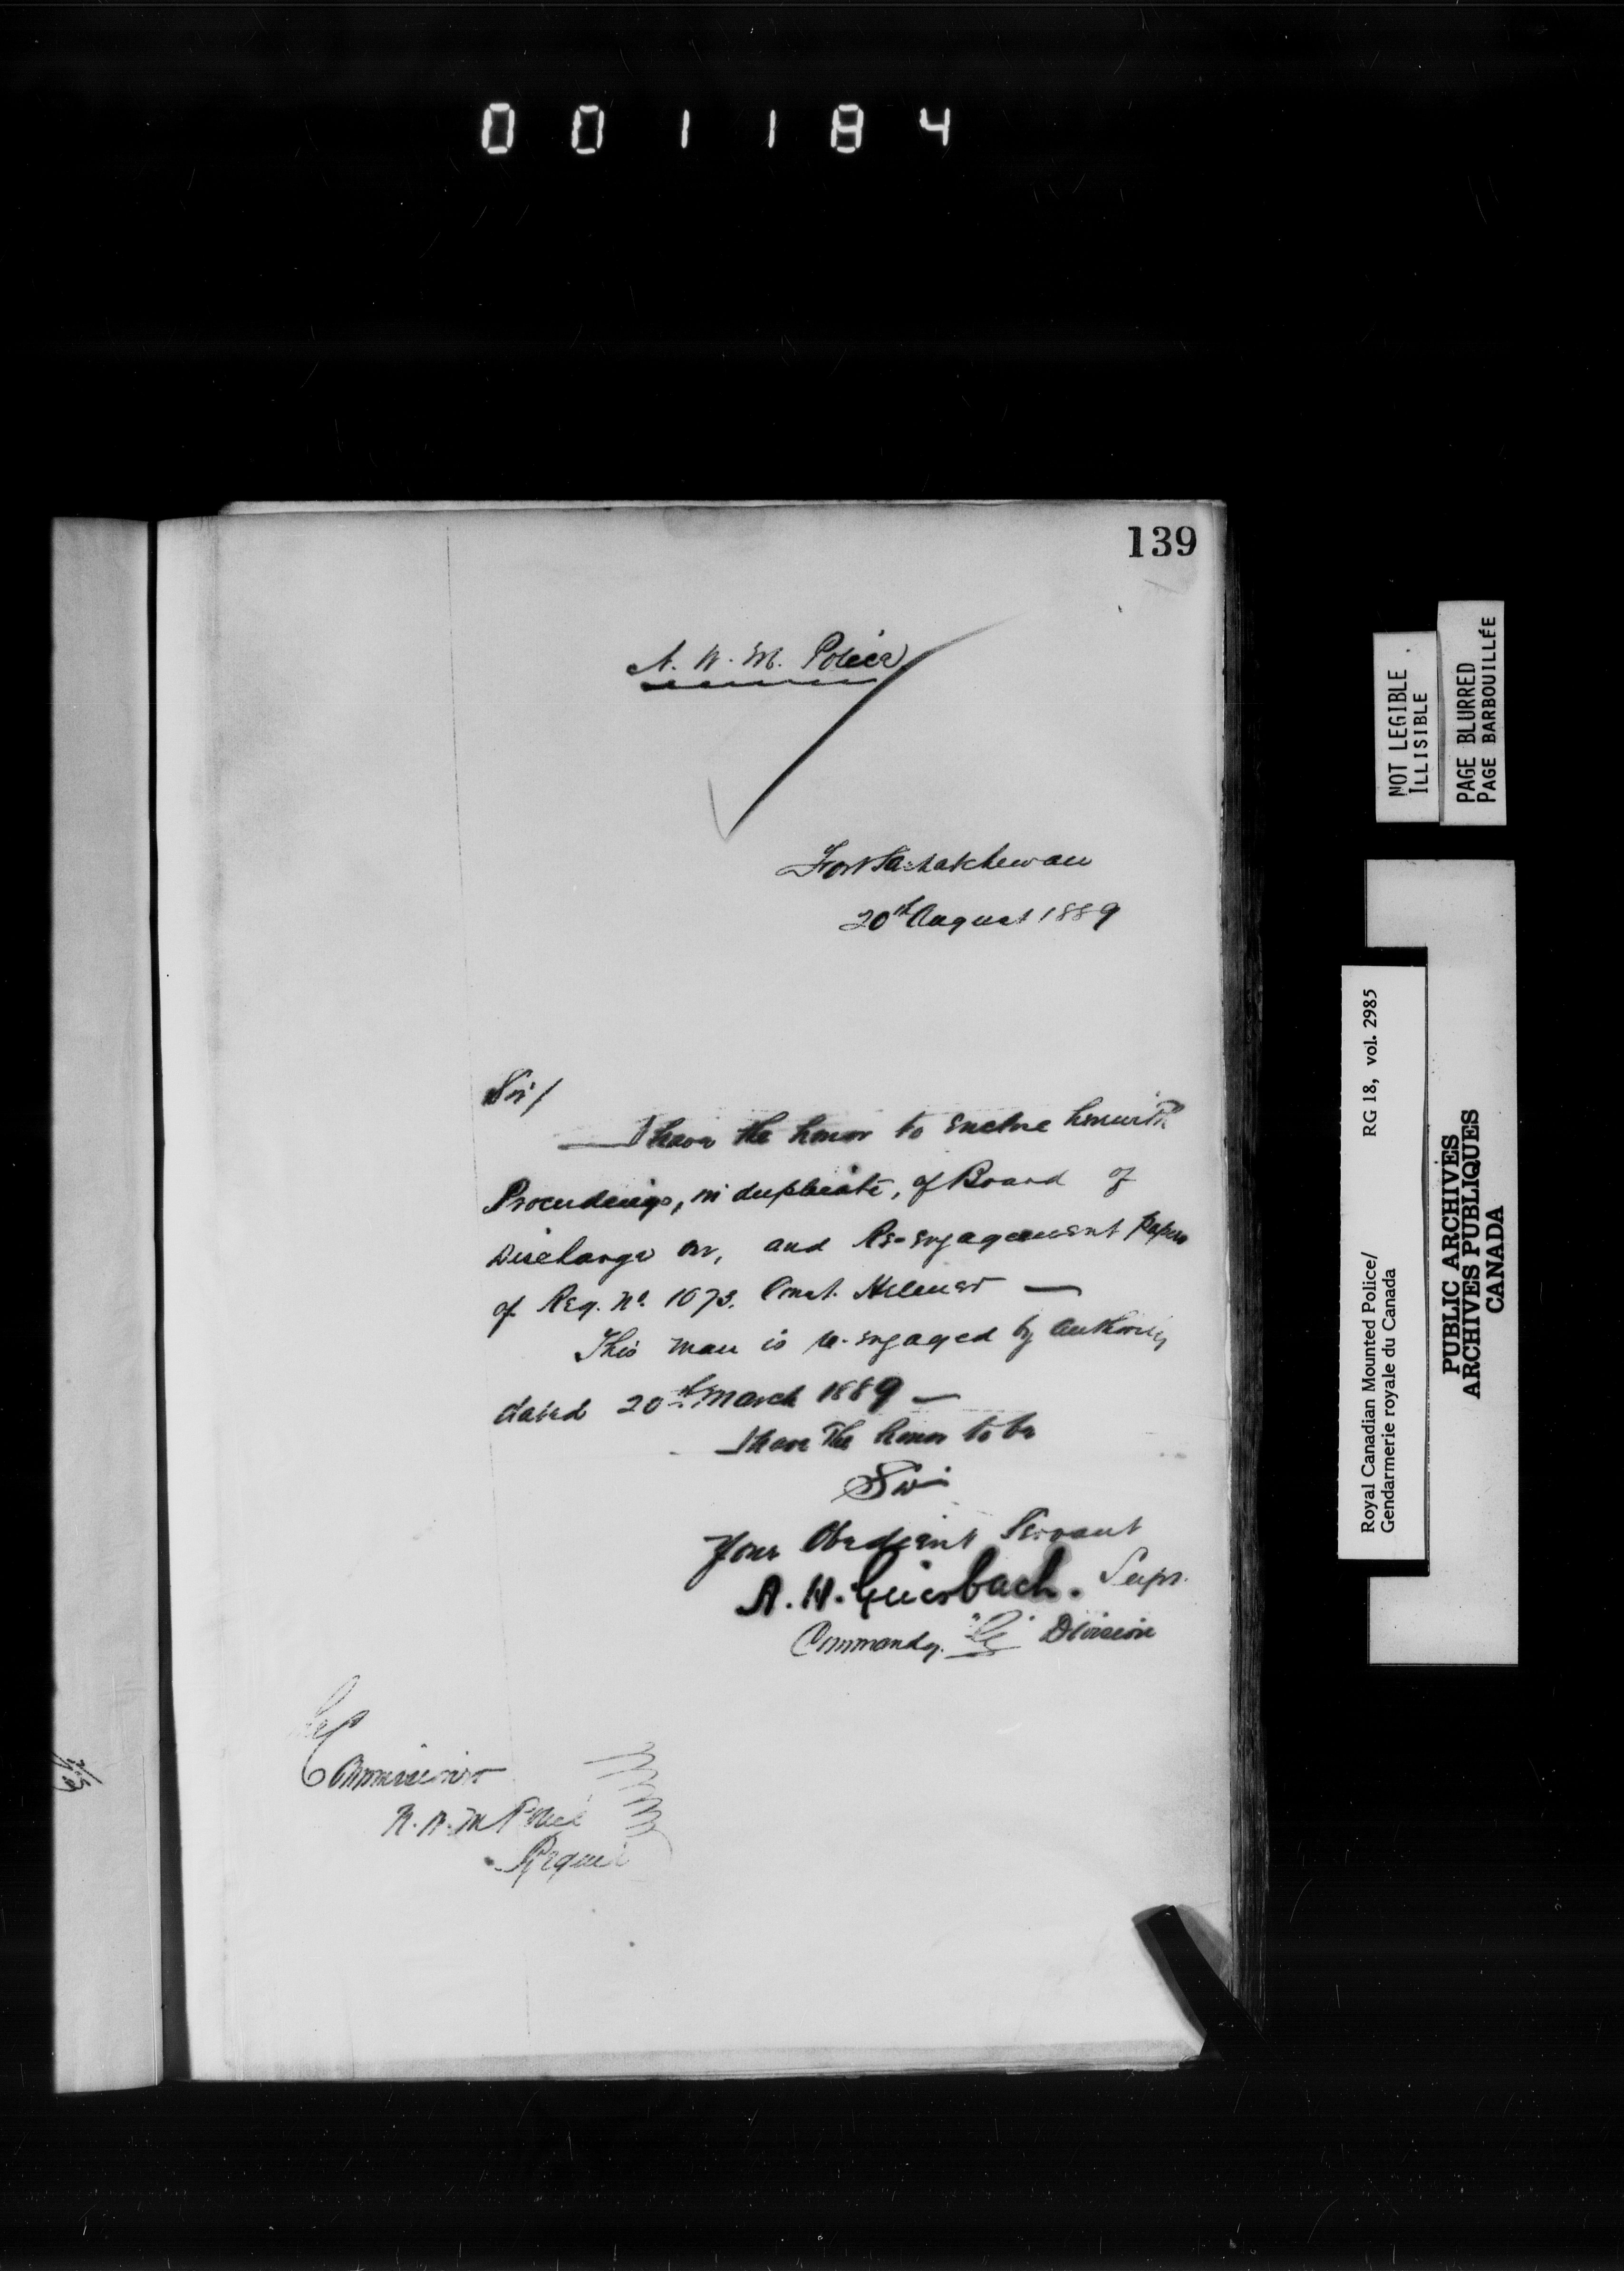 001184
139
N. W. M. Police
Fort Saskatchewan
20th August 1889
Sir/
I have the honor to enclose herewith
Proceedings, in duplicate, of Board of
Discharge on, and Re-engagement papers
of Reg. No. 1073. Const.
This man is re-engaged by authority
dated 20th March 1889 —
I have the honor to be
Sir
Your Obedient Servant
A. H. Griesbach. Supt.
Commandg. "G" Division
The
Commissioner
N. W. M Police
Regina
NOT LEGIBLE
ILLISIBLE
PAGE BLURRED
PAGE BARBOUILLÉE
Royal Canadian Mounted Police/ RG 18, vol. 2985
Gendarmerie royale du Canada
PUBLIC ARCHIVES
ARCHIVES PUBLIQUES
CANADA